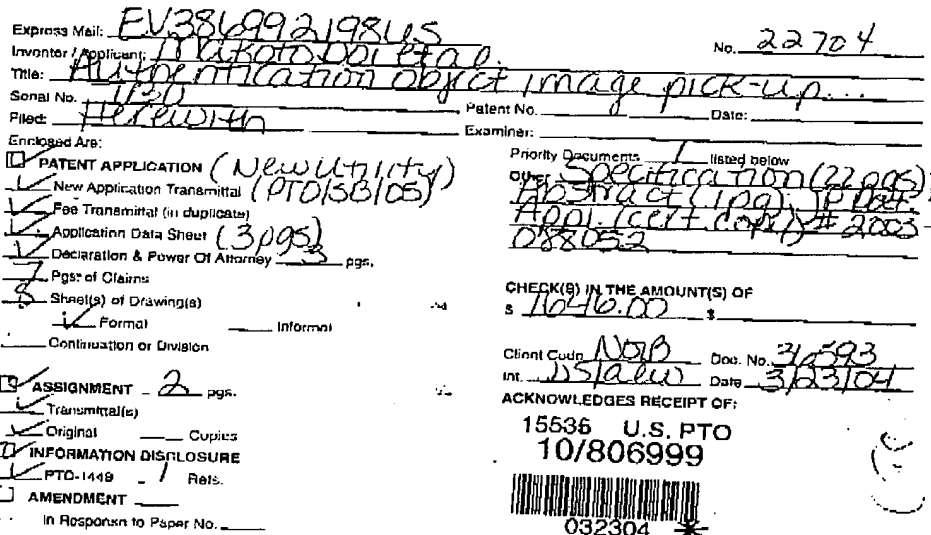 Express Mail: EV386992198US
No. 22704
Inventor / Applicant: Makoto Doi et al.
Title: Authentication object image pick-up...
Serial No. Patent No. Date:
Filed: Herewith Examiner:
Enclosed Are:
PATENT APPLICATION (New Utility)
New Application Transmittal (PTO/SB/05)
Fee Transmittal (in duplicate)
Application Data Sheet (3 pgs)
Declaration & Power Of Attorney 3 pgs.
7 Pgs. of Claims
8 Sheet(s) of Drawing(s)
Formal Informal
Continuation or Division
ASSIGNMENT 2 pgs.
Transmittal(s)
Original Copies
INFORMATION DISCLOSURE
PTO-1449 1 Refs.
AMENDMENT
In Response to Paper No.
Priority Documents 1 listed below
Other Specification (22 pgs),
Abstract (1 pg), JP Pat.
Appl. (cert copy) # 2003-
088052
CHECK(S) IN THE AMOUNT(S) OF
$ 1646.00 $
Client Code Doc. No. 31593
Int. JS/alw Date 3/23/04
ACKNOWLEDGES RECEIPT OF:
15536 U.S. PTO
10/806999
032304